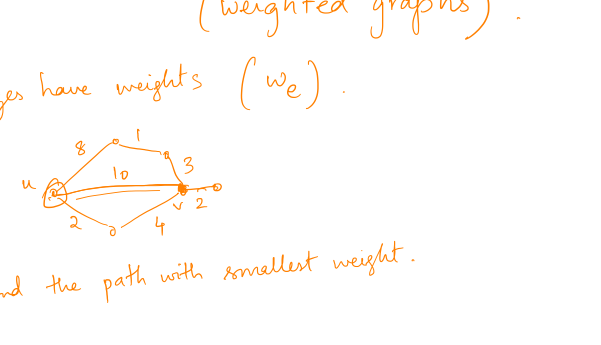 (weighted graphs).
have weights (we).
8 1
u 10 3
2 4 v 2
the path with smallest weight.